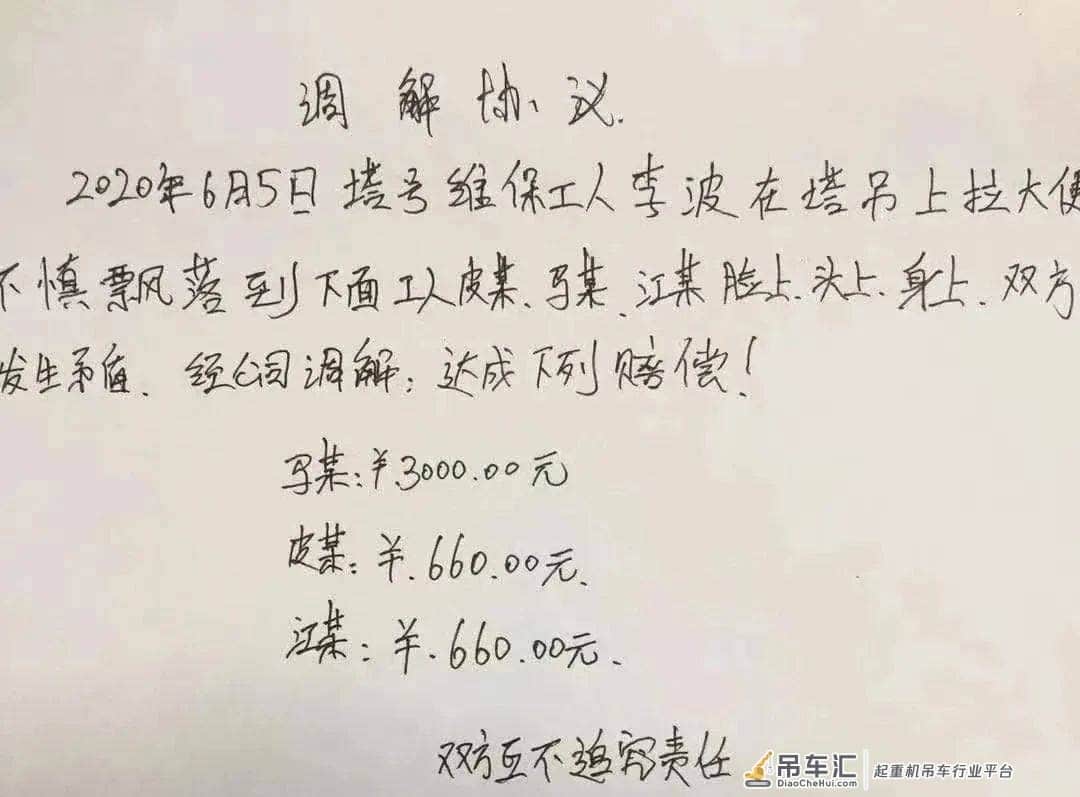 调解协议.
2020年6月5日塔号维保工人李波在塔吊上拉大便
不慎飘落到下面工人皮某、马某、江某脸上、头上、身上、双方
发生矛盾. 经公司调解:达成下列赔偿!
马某:￥.3000.00元
皮某:￥.660.00元.
江某:￥.660.00元.
双方互不追究责任
吊车汇 DiaoCheHui.com 起重机吊车行业平台